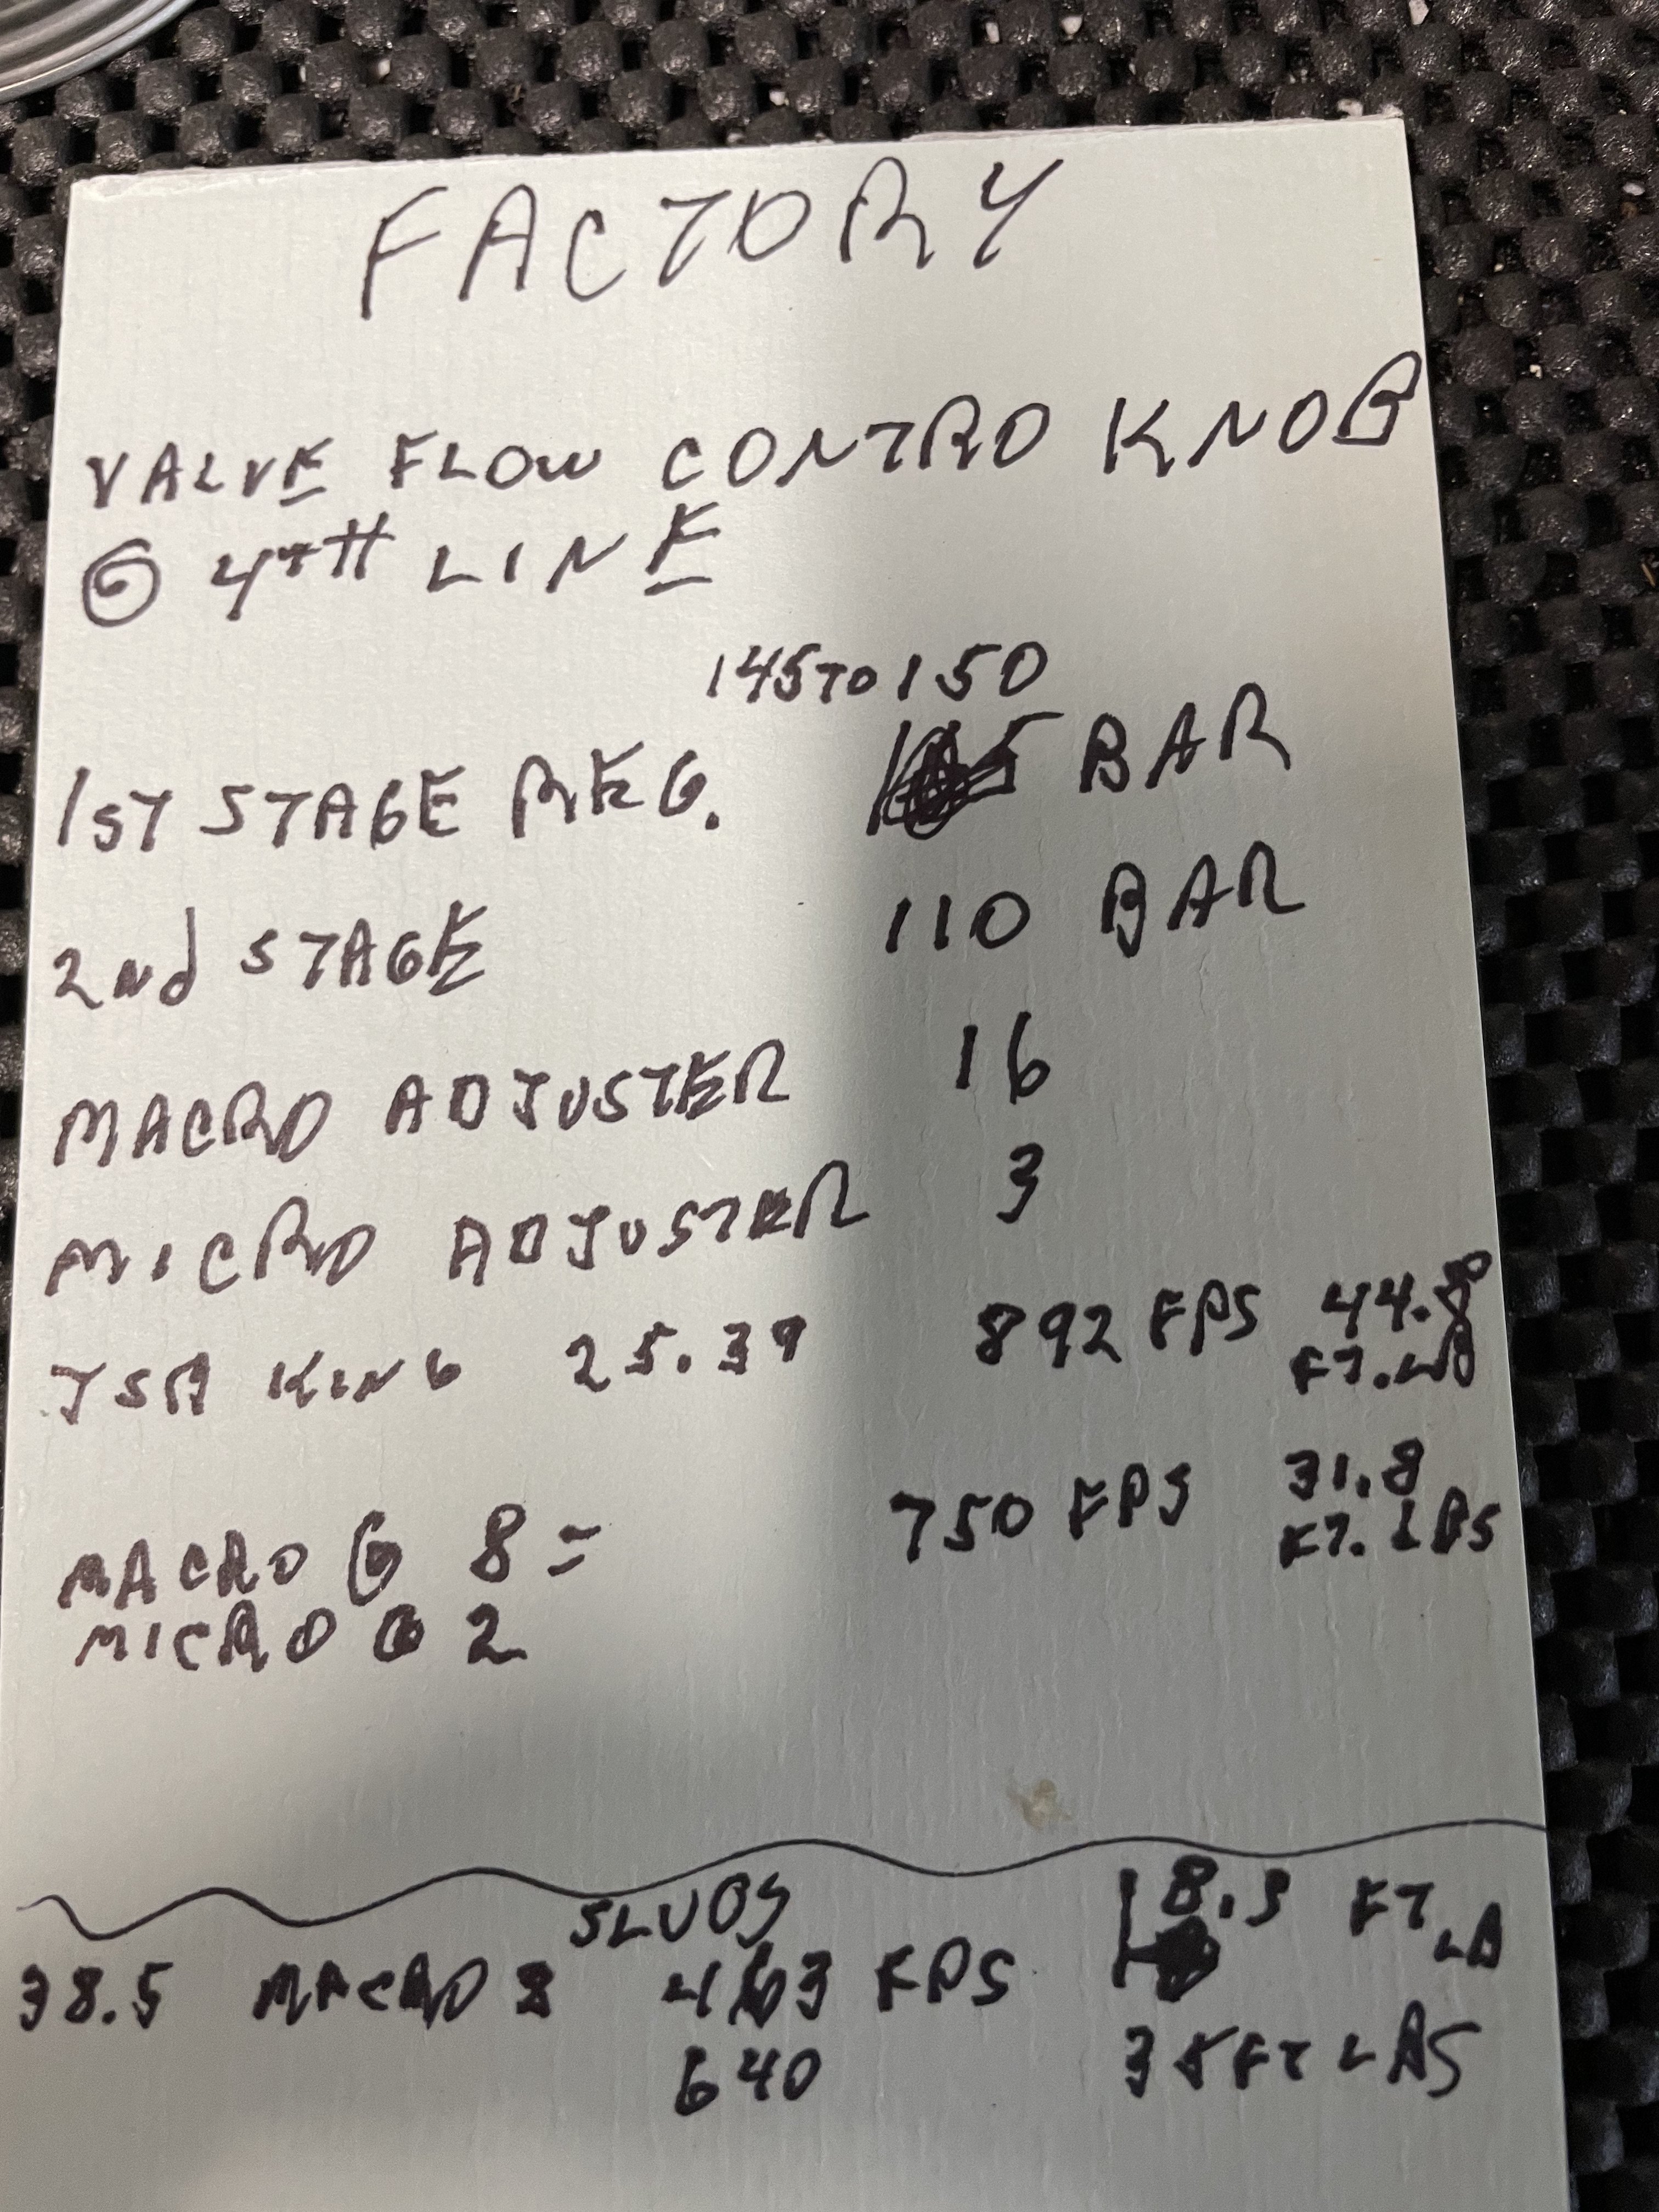 FACTORY
VALVE FLOW CONTRO KNOB
@ 4TH LINE
145 TO 150
1ST STAGE REG. BAR
2nd STAGE 110 BAR
MACRO ADJUSTER 16
MICRO ADJUSTER 3
JSB KING 25.39 892 FPS 44.8
FT.LB
MACRO @ 8 = 750 FPS 31.8
FT. LBS
MICRO @ 2
SLUGS
38.5 MACRO 2 463 FPS 18.3 FT LB
640 35 FT LBS